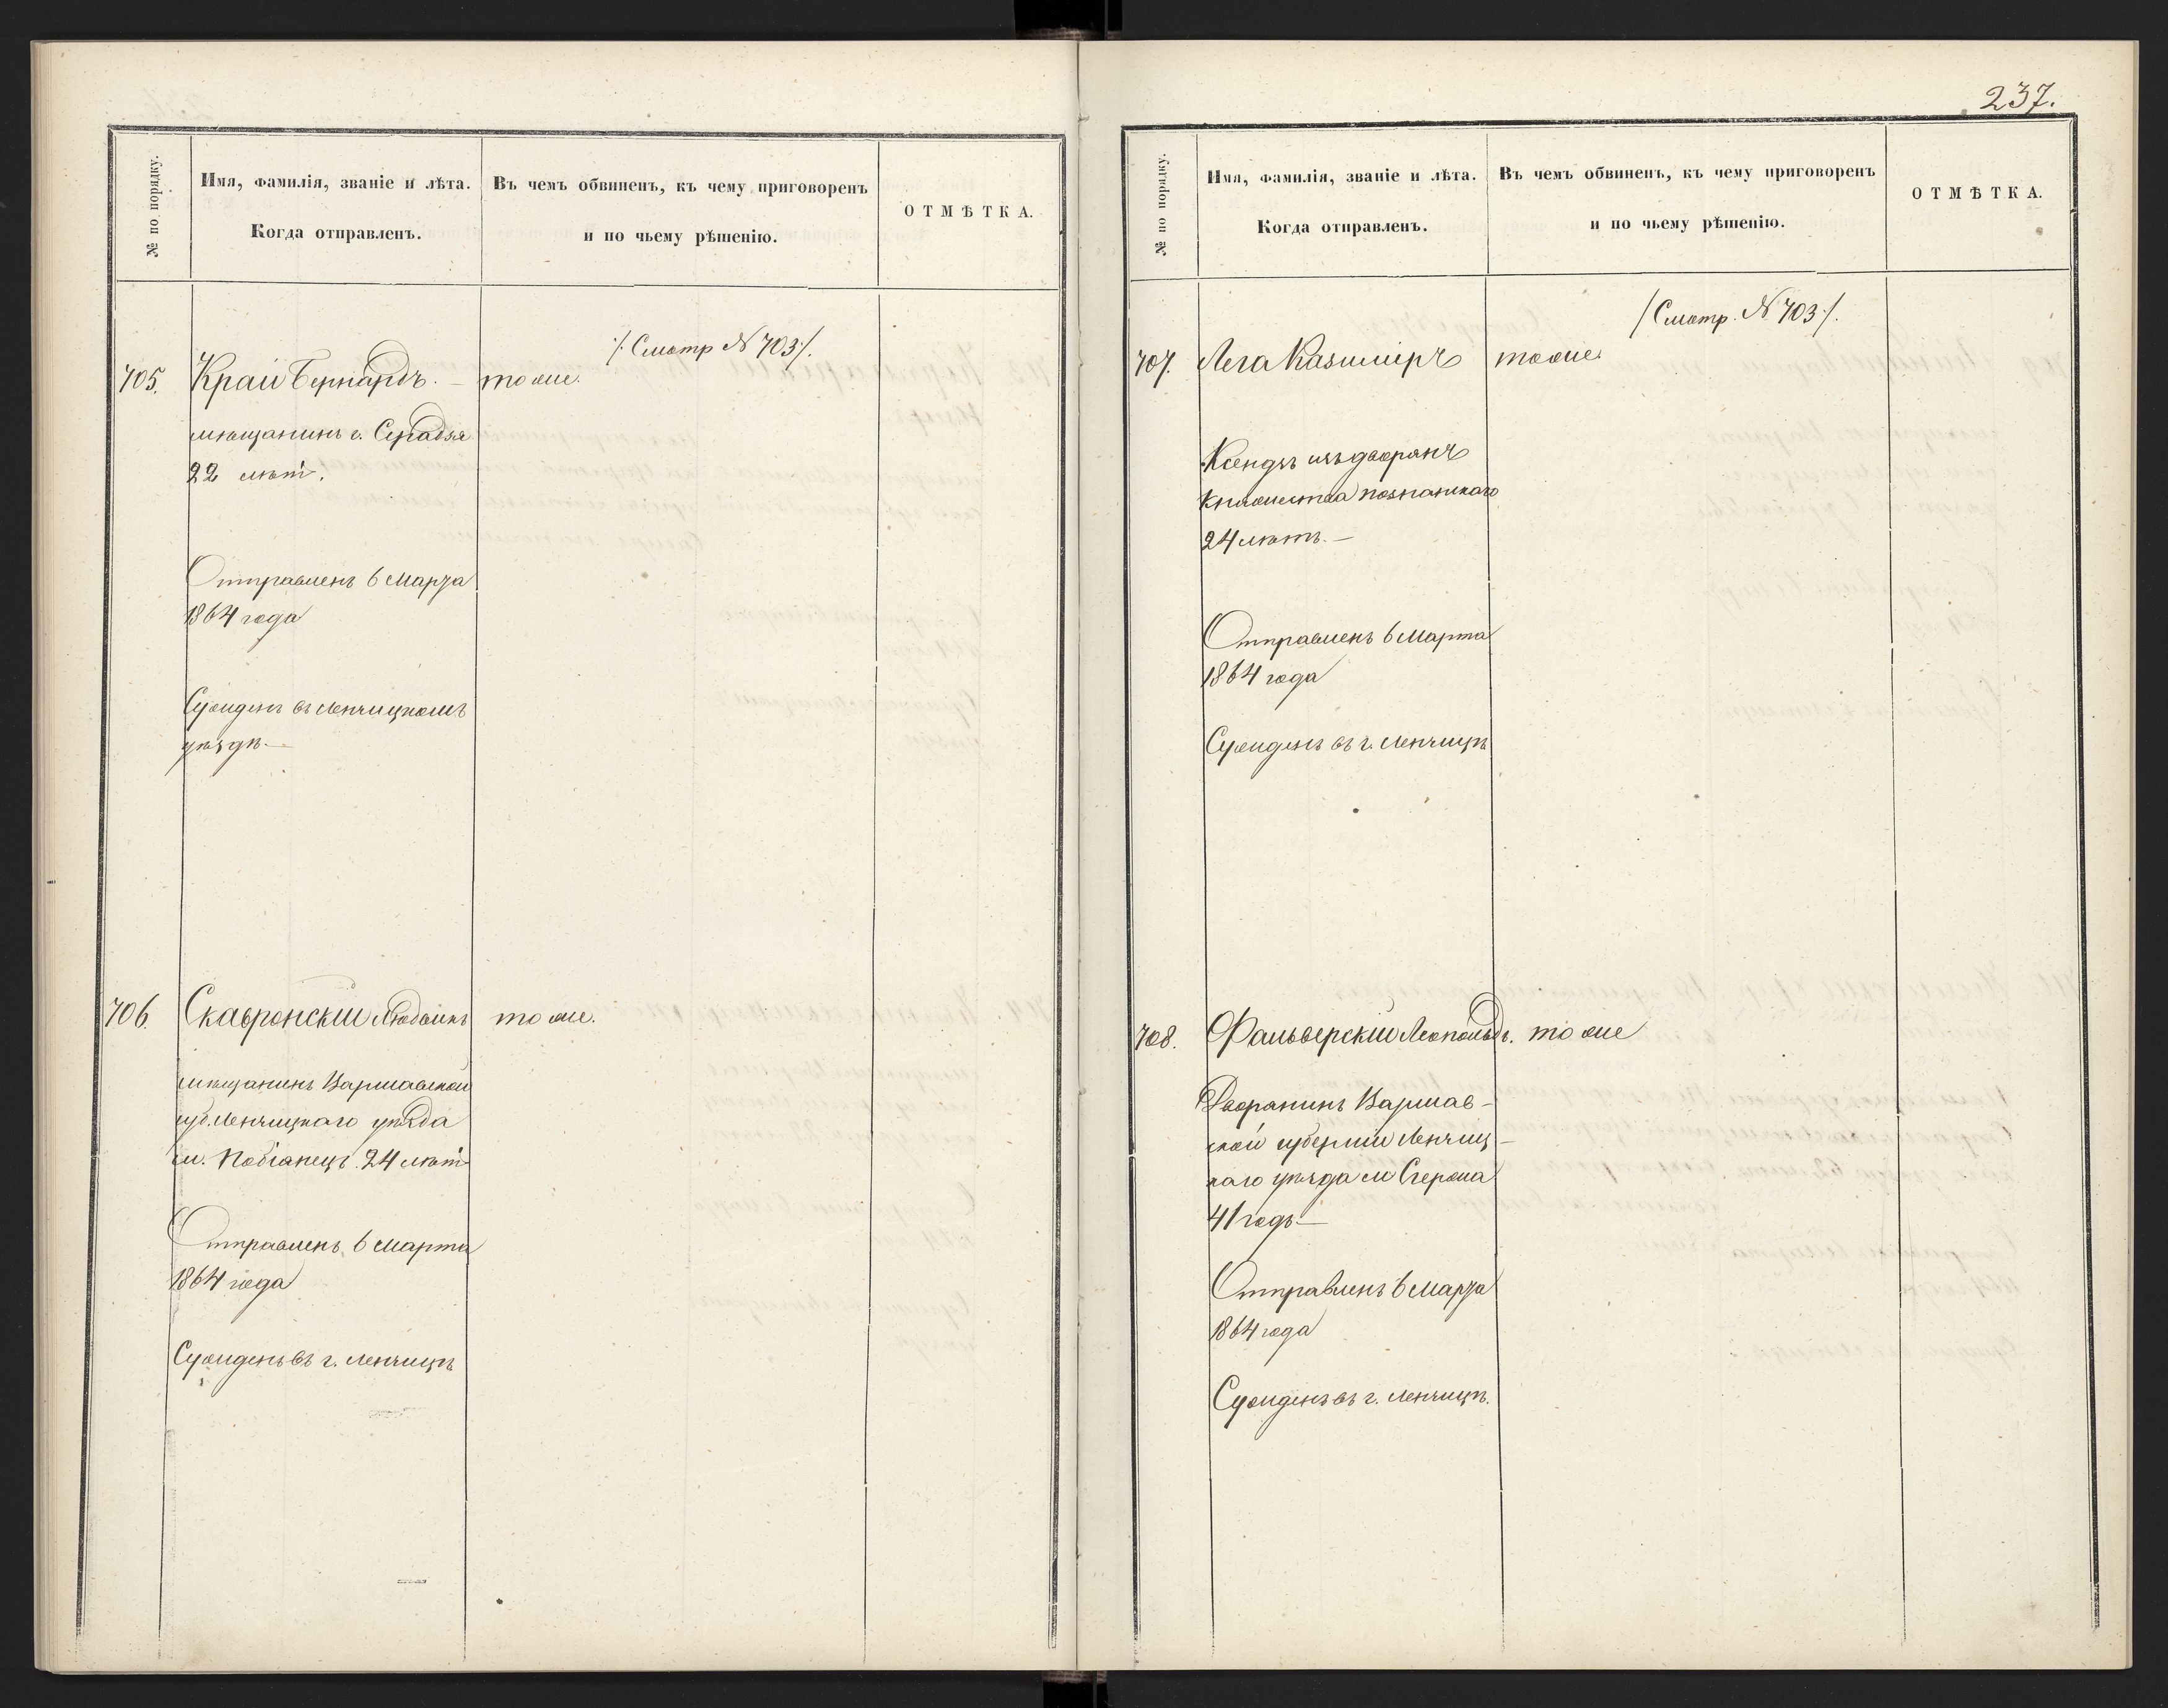 № по порядку.
Имя, фамилія, званіе и лѣта.
Когда отправленъ.
Въ чемъ обвиненъ, къ чему приговоренъ
и по чьему рѣшенію.
ОТМѢТКА.
/:Смотр № 703:/.
705. Край Бернардъ. — тоже.
мѣщанинъ г. Серадзя
22 лѣт.
Отправленъ 6 Марта
1864 года
Сужденъ въ Ленчицкомъ
уѣздѣ.—
706. Скавронскій Людвикъ тоже.
мѣщанинъ Варшавской
губ. Ленчицкаго уѣзда
м. Побіанецъ. 24 лѣт
Отправленъ 6 Марта
1864 года
Сужденъ въ г. Ленчицѣ
237.
№ по порядку.
Имя, фамилія, званіе и лѣта.
Когда отправленъ.
Въ чемъ обвиненъ, къ чему приговоренъ
и по чьему рѣшенію.
ОТМѢТКА.
/Смотр. № 703:/.
707. Лега Казиміръ тоже.
Ксендзъ изъ дворянъ
Княжества Познанскаго
24 лѣтъ.—
Отправленъ 6 Марта
1864 года
Сужденъ въ г. Ленчицѣ
708. Фальверскій Леопольдъ. тоже
Дворянинъ Варшав-
ской губерніи Ленчиц-
каго уѣзда м Згержа
41 годъ.—
Отправленъ 6 Марта
1864 года
Сужденъ въ г. Ленчицѣ.